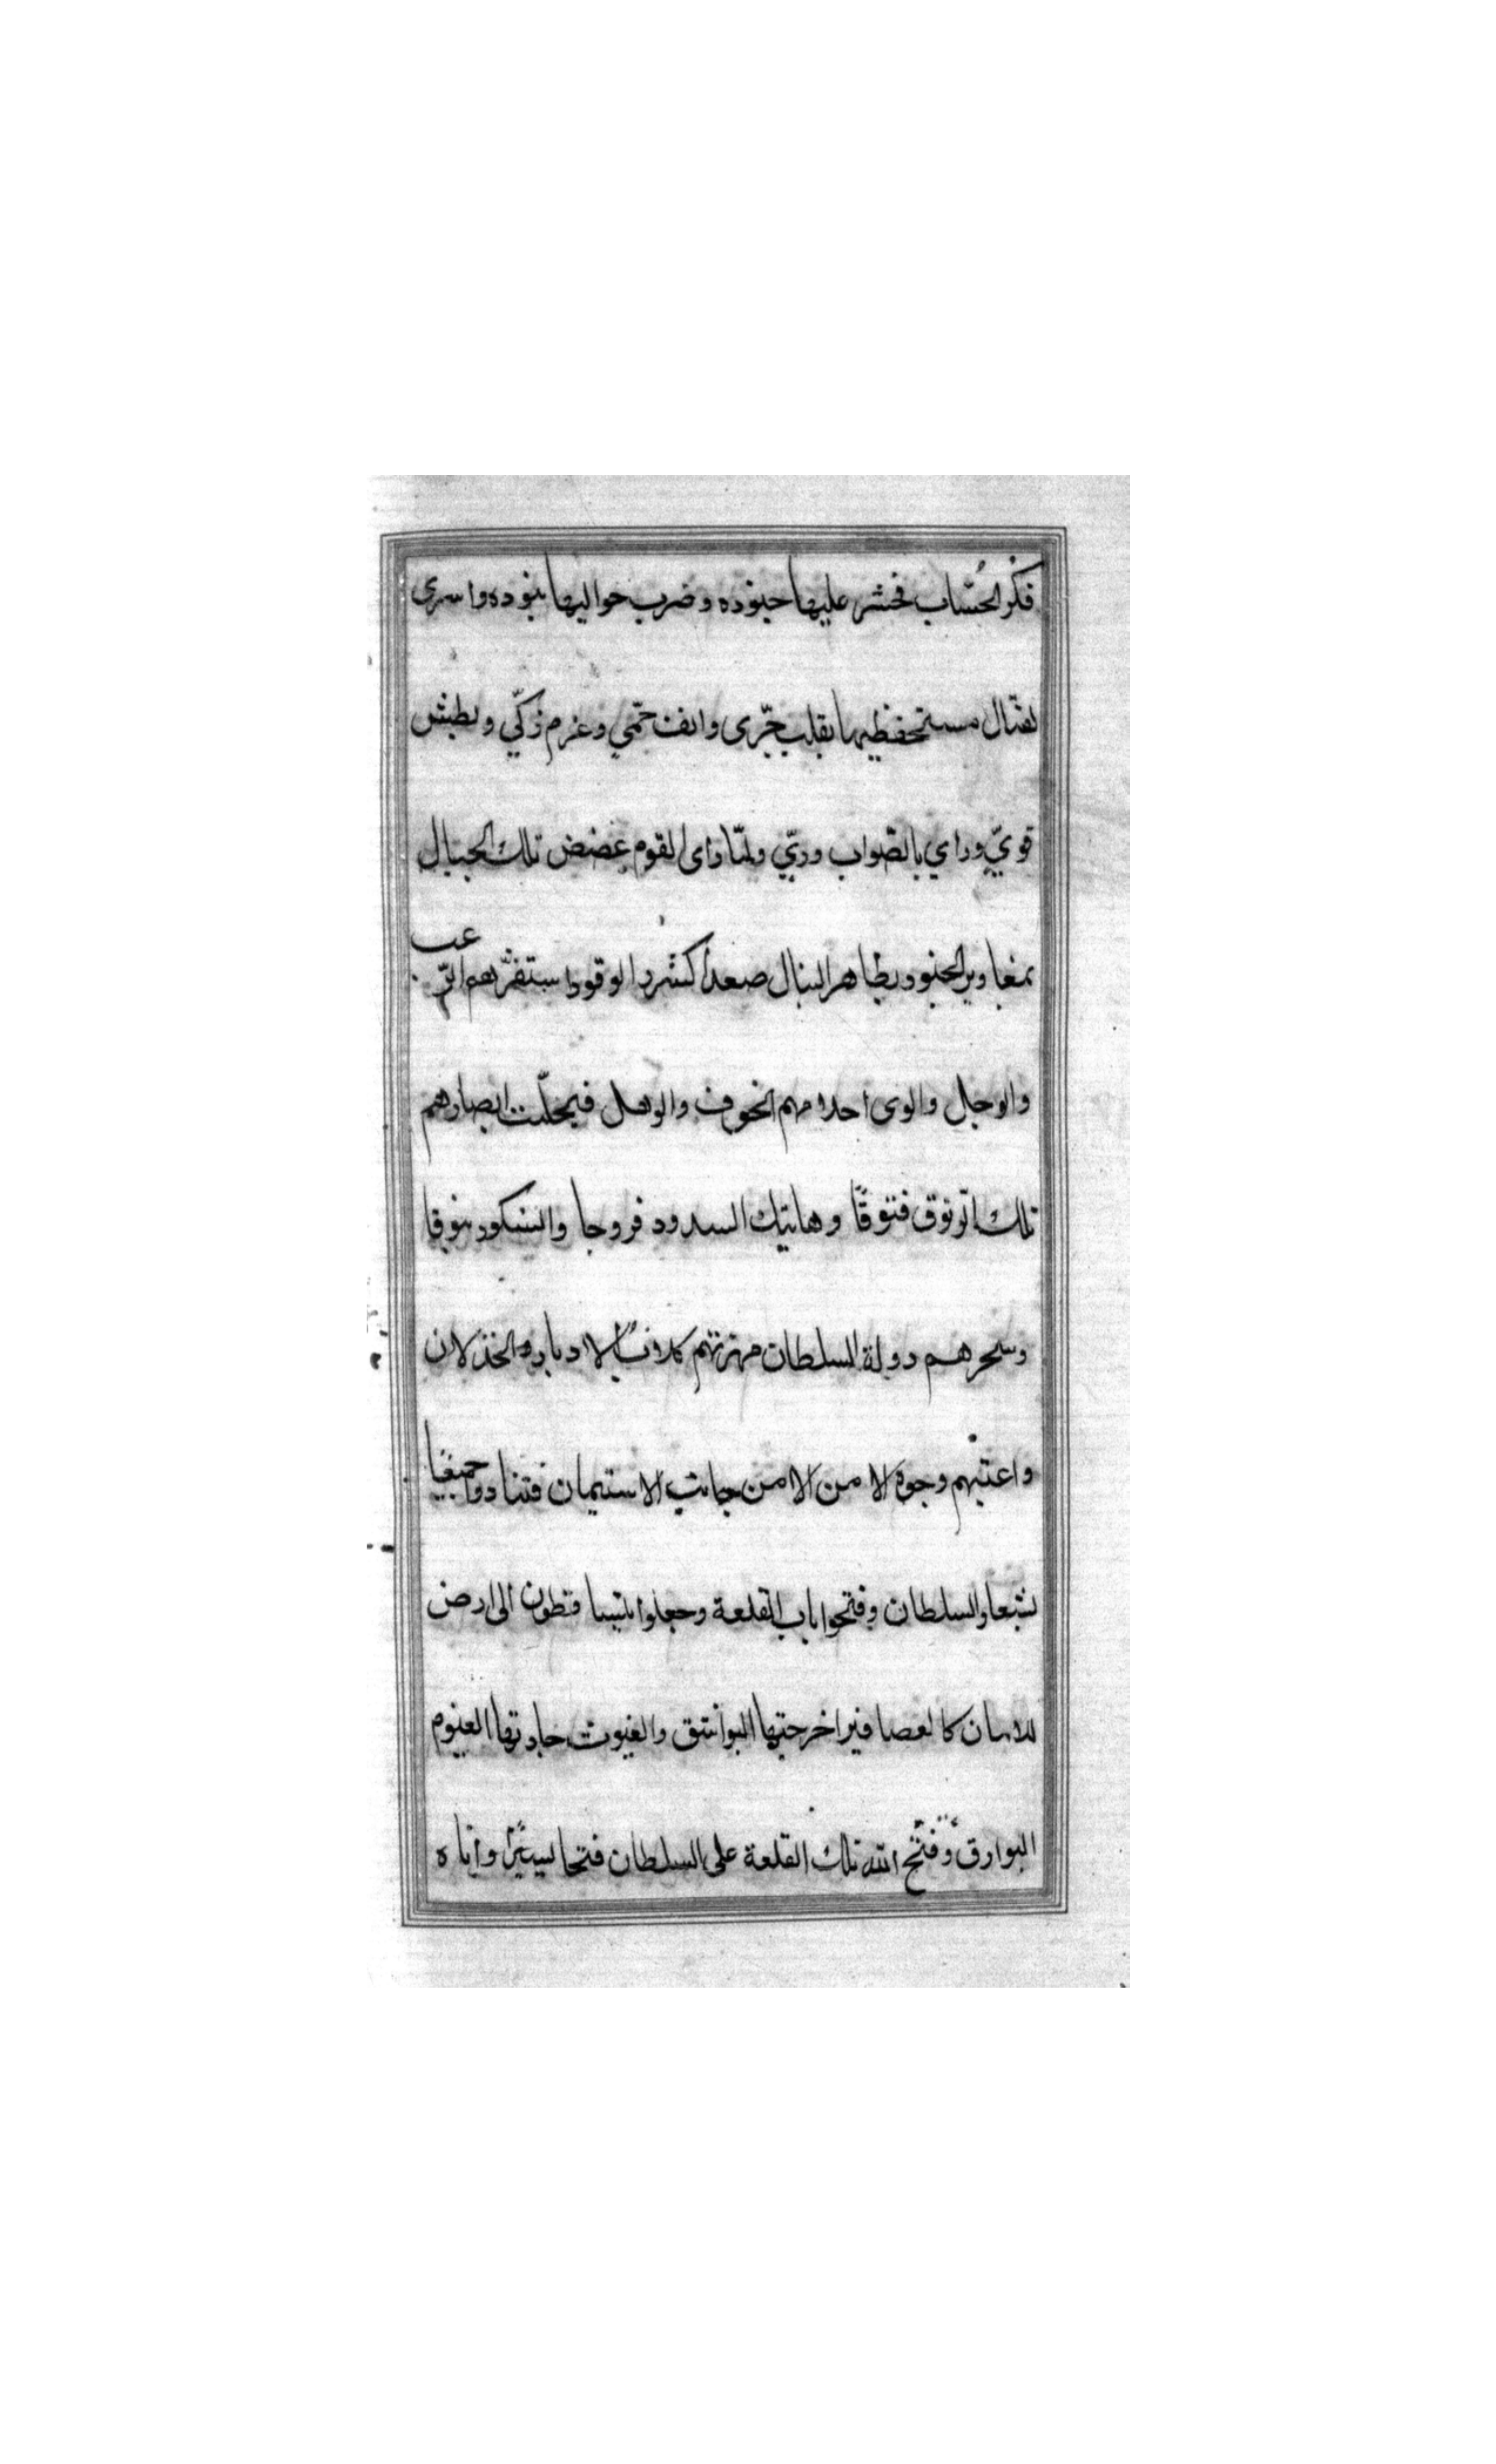 فكر الحسّاب فحشر عليها جنوده وضرب حواليها بنوده واسرى
لقتال مستحفظيها بقلب جّرى وانف حمّي وعزم زكّي وبطش
قويّ وراي بالصّواب وريّ ولمّا رأى القوم غضض تلك الجبال
بمغاوير الجنود وتظاهر النبال صعدا كشرر الوقود استفزّهم الرّعب
والوجل والوى احلامهم الخوف والوهل فتخيلّت ابصارهم
تلك الرّتوق فتوقًا وهاتيك السدود فروجا والسكور بثوقا
وسحرهم دولة السلطان
واعتبهم وجوه الامن الا من جانب الاستيمان فتنادوا جميعًا
بشعار السلطان وفتحوا باب القلعة وجعلوا يتساقطون الى ارض
الامان كالعصافير اخرجتها البواشق والغيوث جادتها الغيوم
البوارق وفتح الله تلك القلعة على السلطان فتحا يسيرًا واتاه